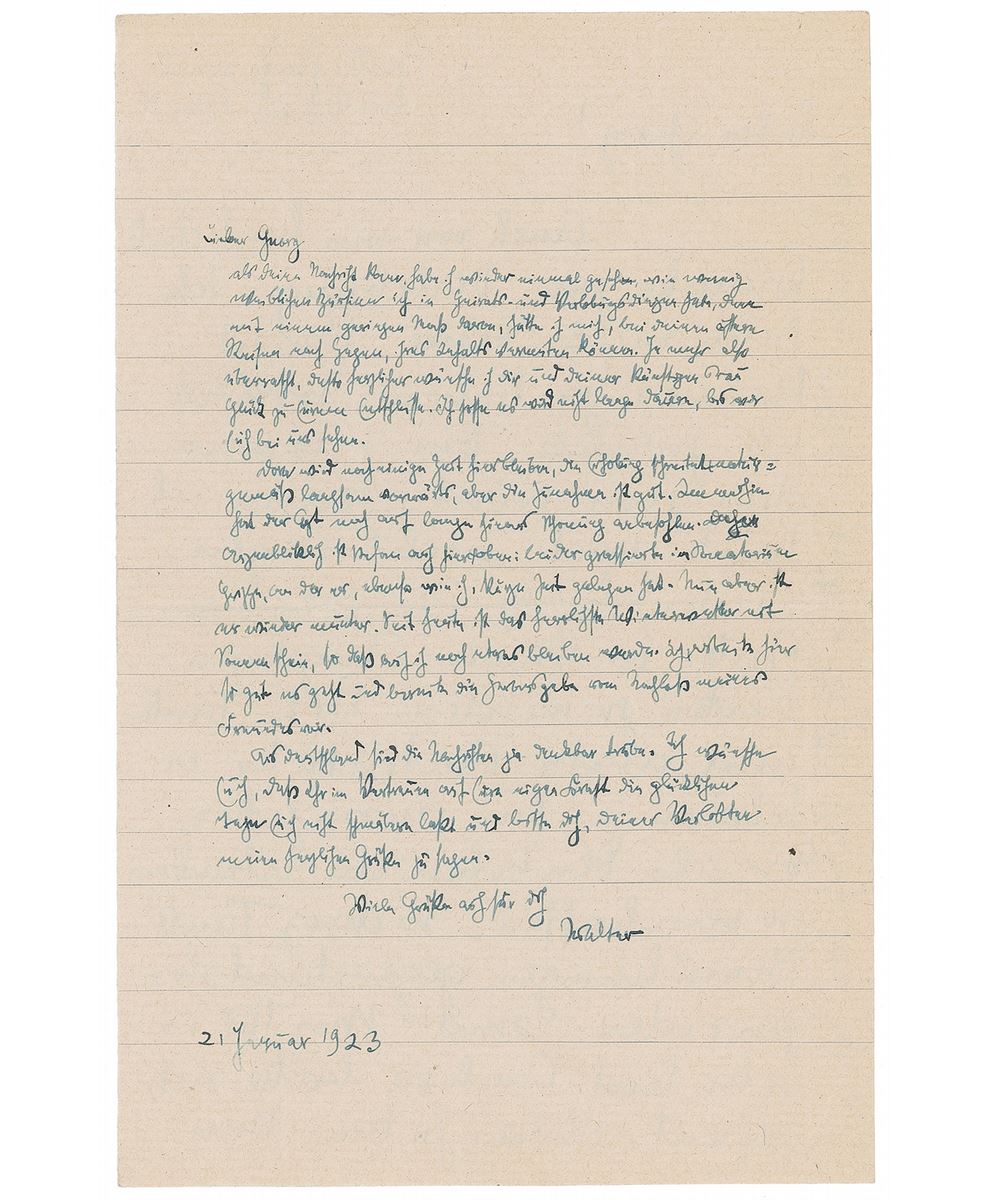 Lieber Georg
als deine Nachricht kam, habe ich wieder einmal gesehen, wie wenig
weiblichen Spürsinn ich in Heirats- und Verlobungsdingen habe, denn
mit einem geringen Maß davon, hätte ich mich, bei deinen öftern
Reisen nach Hagen, ihres Inhalts vermuten können. Je mehr also
überrascht, desto herzlicher wünsche ich dir und deiner künftigen Frau
Glück zu Eurem Entschlusse. Ich hoffe es wird nicht lange dauern, bis wir
Euch bei uns sehen.
Dora wird noch einige Zeit hier bleiben, die Erholung schreitet natur=
gemäß langsam vorwärts, aber die Zunahme ist gut. Immerhin
hat der Arzt noch auf lange hinaus Schonung anbefohlen.
Augenblicklich ist Stefan auch hier oben: leider grassierte im Sanatorium
Grippe, an der er, ebenso wie ich, kurze Zeit gelegen hat. Nun aber ist
er wieder munter. Seit heute ist das herrlichste Winterwetter mit
Sonnenschein, so daß auch ich noch etwas bleiben werde. Ich arbeite hier
so gut es geht und bereite die Herausgabe vom Nachlaß meines
Freundes vor.
Aus Deutschland sind die Nachrichten ja denkbar trübe. Ich wünsche
Euch, daß Ihr im Vertrauen auf Eure eigne Kraft die glücklichen
Tage Euch nicht schmälern laßt und bitte dich, deiner Verlobten
meine herzlichen Grüße zu sagen.
Viele Grüße auch für dich
Walter
21 Januar 1923